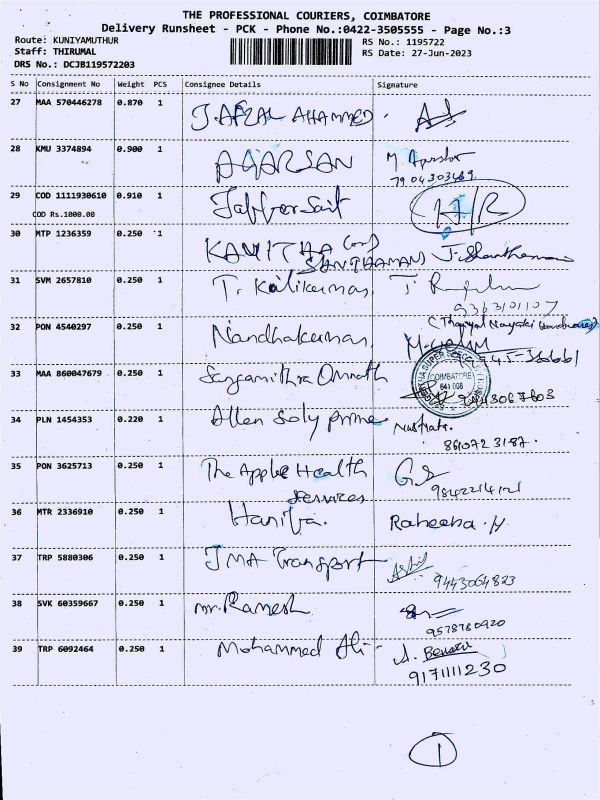 THE PROFESSIONAL COURIERS, COIMBATORE
Delivery Runsheet - PCK - Phone No.:0422-3505555 - Page No.:3
Route: KUNIYAMUTHUR
RS No.: 1195722
Staff: THIRUMAL
RS Date: 27-Jun-2023
DRS No.: DCJB119572203
S No Consignment No Weight PCS Consignee Details Signature
27 MAA 570446278 0.870 1 J. AFZAL AHAMMED.
28 KMU 3374894 0.900 1 M.
7904303469.
29 COD 1111930610 0.910 1 Jaffer Sait H/R
COD Rs.1000.00
30 MTP 1236359 0.250 1 KAVITHA (or)
SANTHAMANI J.
31 SVM 2657810 0.250 1 T. Kalikumar, T.
9363101107
32 PON 4540297 0.250 1 Nandhakumar,
33 MAA 860047679 0.250 1 Sangamithra
COIMBATORE
641 008
9443067603
34 PLN 1454353 0.220 1 Allen Soly prime
8610723187.
35 PON 3625713 0.250 1 The Apple Health
Services
9842214121
36 MTR 2336910 0.250 1 Hanifa. Raheeba. H
37 TRP 5880306 0.250 1 JMA Transport
9443064823
38 SVK 60359667 0.250 1 mr. Ramesh
9578780920
39 TRP 6092464 0.250 1 Mohammed Ali - A.
9171111230
1